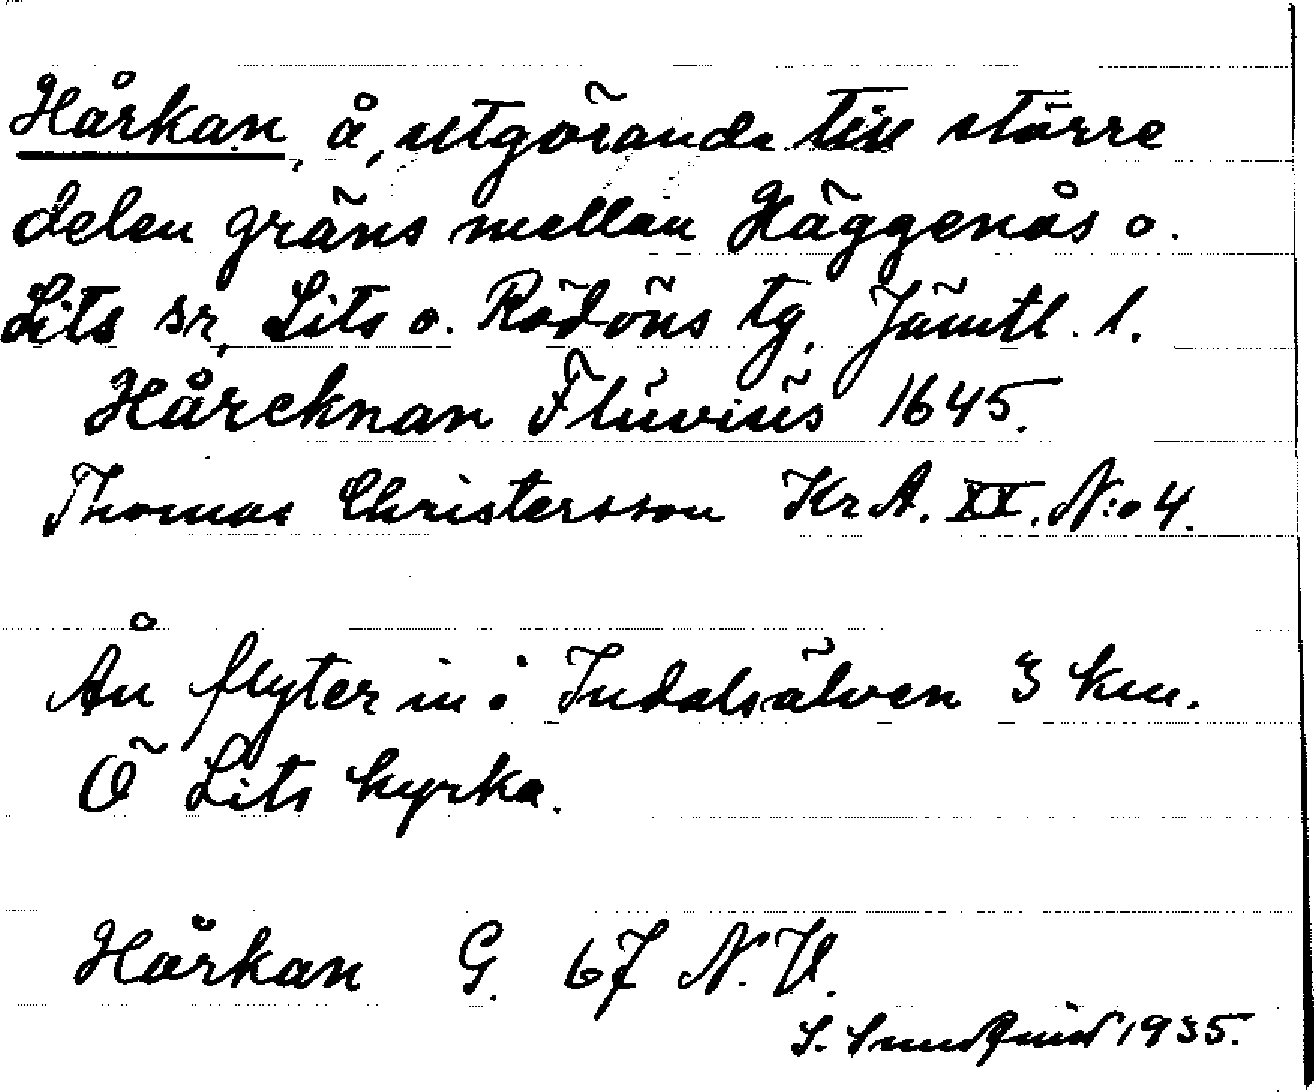 Hårkan, å, utgörande till större
delen gräns mellan Häggenås o.
Lits sr, Lits o. Rödöns tg, Jämtl. l.
Hårcknan Flúviús 1645.
Thomas Christersson Kr A. XX. N:o 4.
Ån flyter in i Indalsälven 3 km.
Ö Lits kyrka.
Hårkan G. 67 N.V.
S. Sundquist 1935.